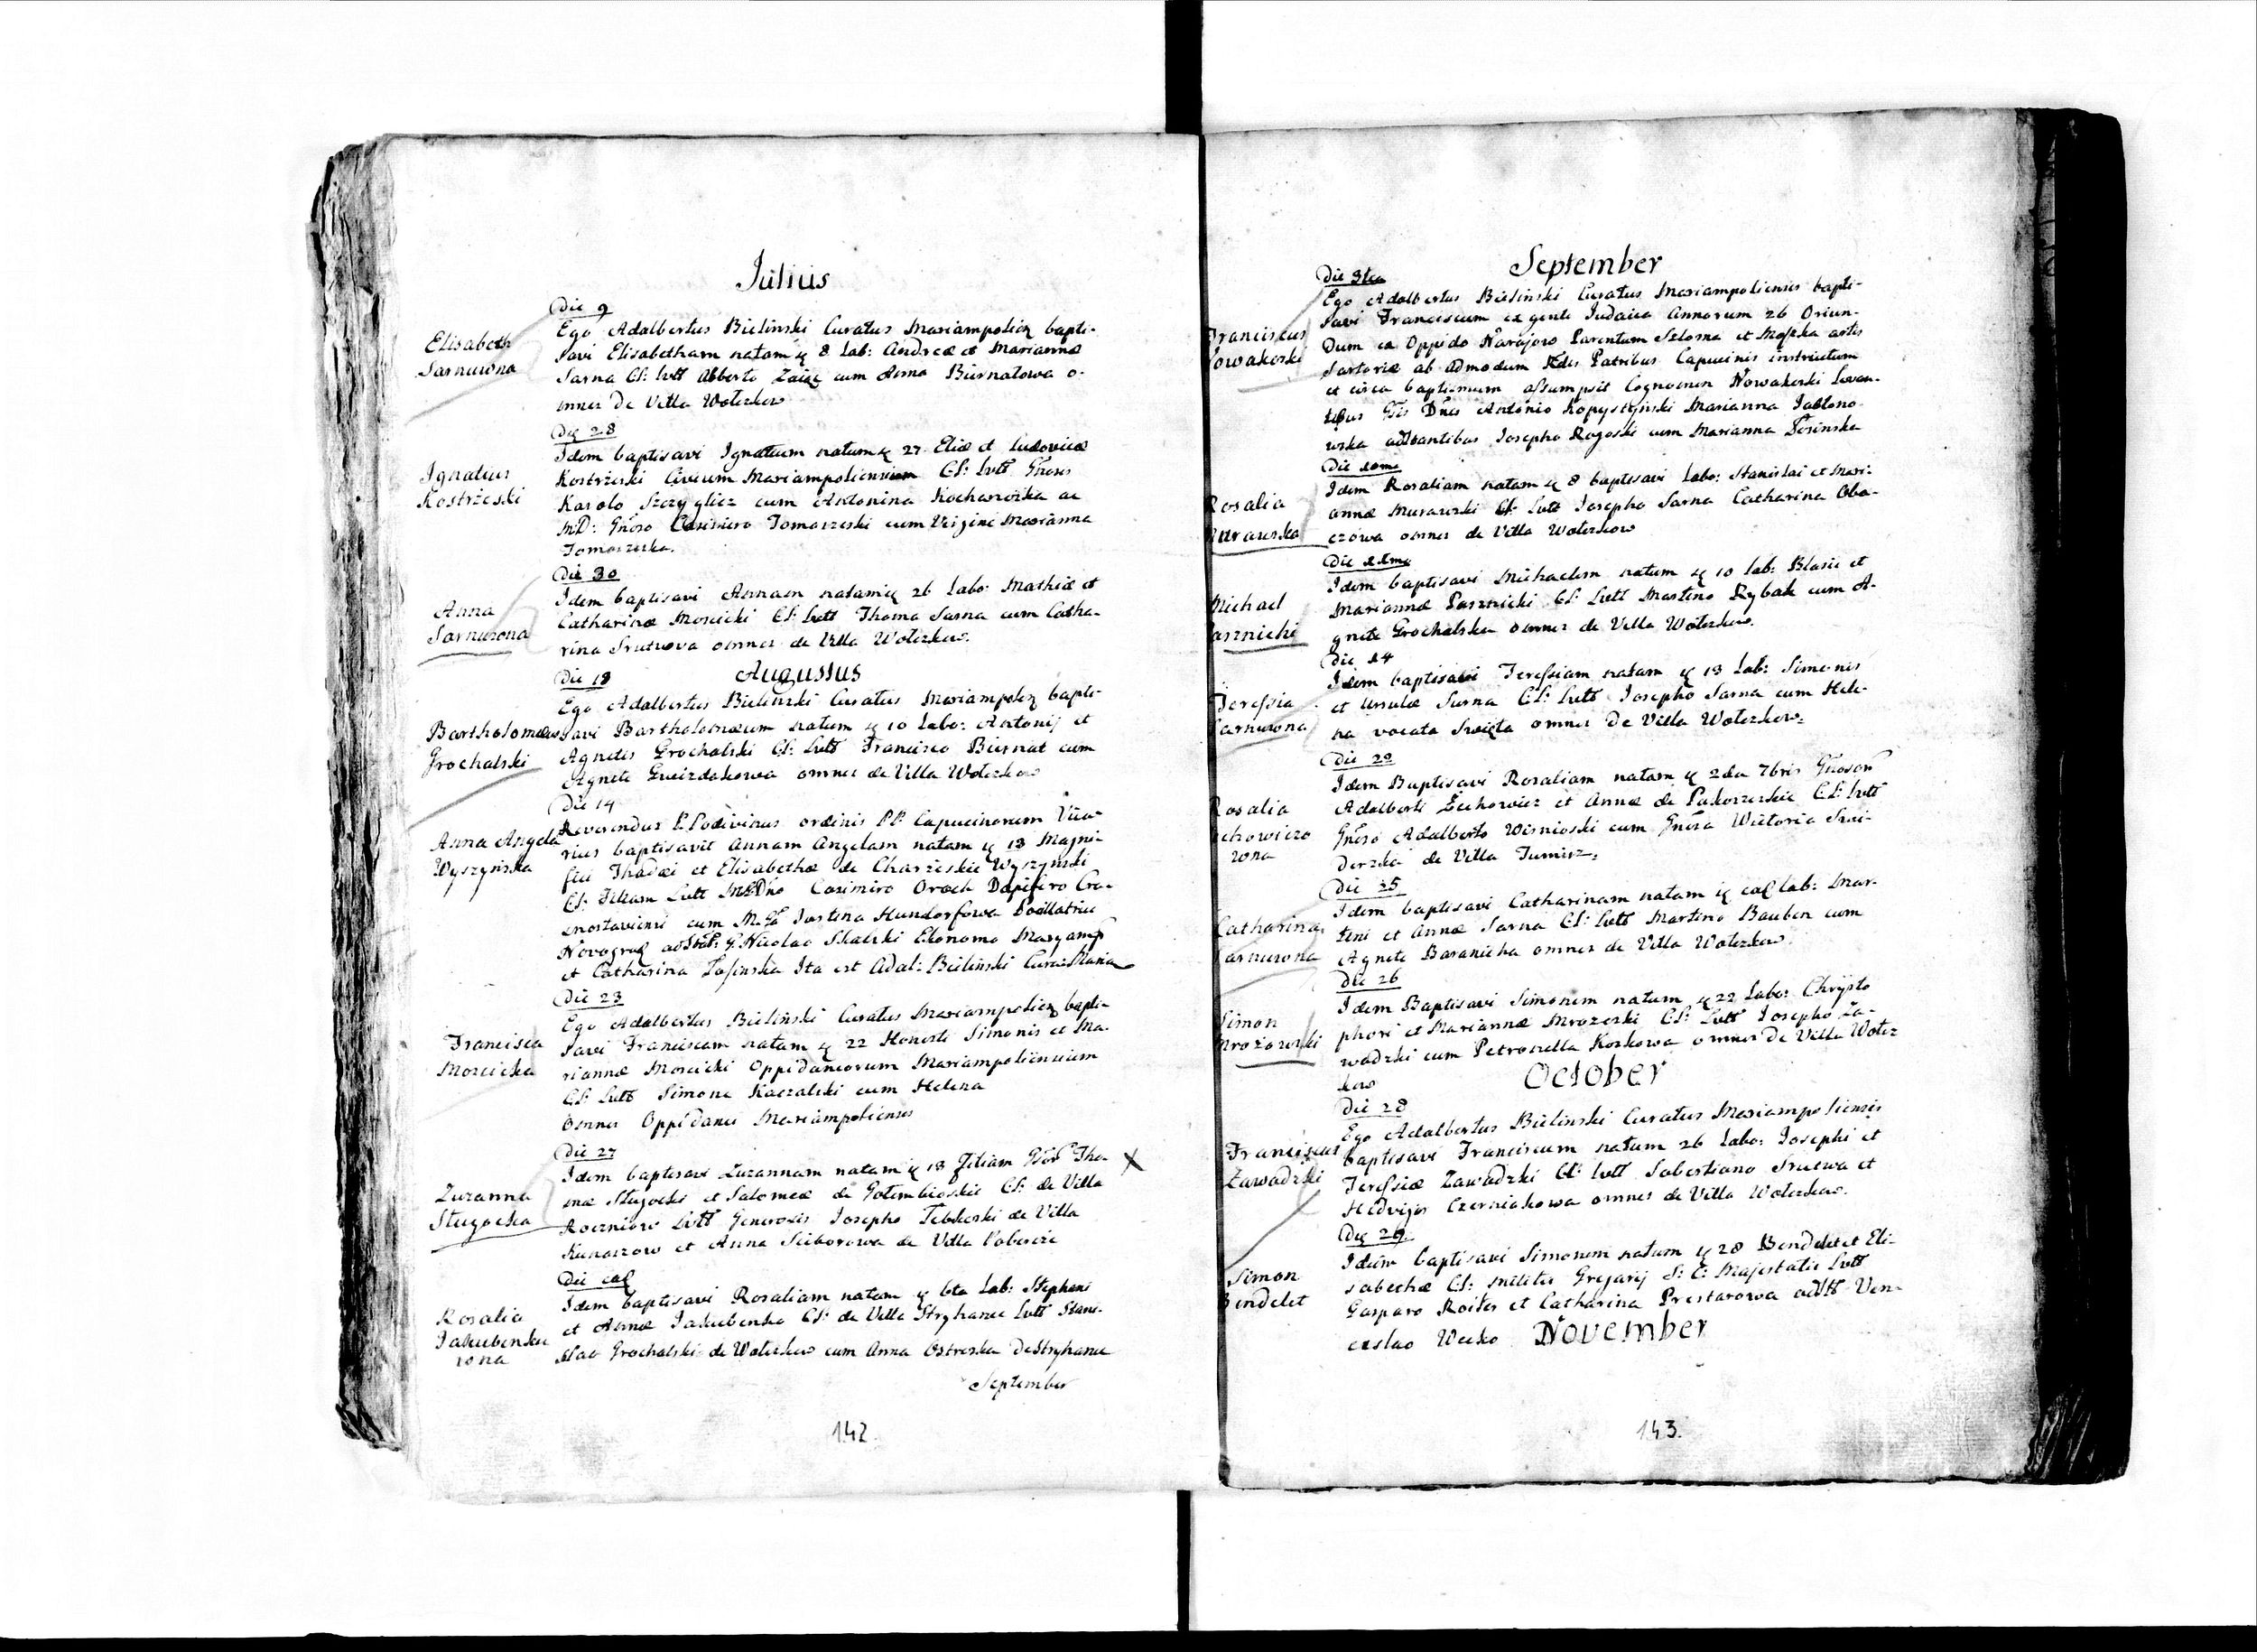 Julius
Die 9
Elisabeth
Sarnuwna
Ego Adalbertus Bielinski Curatus Mariampolien bapti-
savi Elisabetham natam 8 Lab: Andreæ et Mariannæ
Sarna CL: Lvtt Alberto Zaiąc cum Anna Biernatowa o-
mnes de Villa Wołczkow
Die 28
Ignatius
Kostrzeski
Idem baptisavi Ignatium natum 27 Eliæ et Ludovicæ
Kostrzeski Civium Mariampoliensium CL: Lvtt Gnoso
Karolo Szczyglicz cum Antonina Kocharzoska ac
MD: Gnoso Casimiro Tomaszeski cum Virgine Marianna
Tomaszeska.
Die 30
Anna
Idem baptisavi Annam natam 26 Labo: Mathiæ et
Catharinæ Moscicki CL: Lvtt Thoma Sarna cum Catha-
rina omnes de Villa Wołczkow.
Augustus
Die 13
Bartholomæus
Grochalski
Ego Adalbertus Bielinski Curatus Mariampolien bapti-
savi Bartholomæum natum 10 Labo: Antonij et
Agnetis Grochalski CL: Lvtt Francisco Biernat cum
Agnete Gwizdakowa omnes de Villa Wołczkow
Die 14
Anna Angela
Wyszyńska
Reverendus P. Podivinus ordinis PP. Capucinorum Vica-
rius baptisavit Annam Angelam natam 13 Magni-
fici Thadæi et Elisabethæ de Charzeskie Wyszynski
CL: Filiam Lvtt Casimiro Dapifero Cra-
snostaviensi cum Justina Hundorfowa
G. Nicolao Skalski Ekonomo Maryamp
et Catharina Łosinska Ita est Adal: Bielinski Cura: Maria
Die 23
Francisca
Moscicka
Ego Adalbertus Bielinski Curatus Mariampolien bapti-
savi Franciscam natam 22 Honesti Simonis et Ma-
riannæ Moscicki Oppidaneorum Mariampoliensium
CL: Lvtt Simone Kaczalski cum Helena
Omnes Oppidanei Mariampolienses
Die 27
Zuzanna
Sługocka
Idem baptisavi Zuzannam natam 13 Filiam Tho-
mæ Sługocki et Salomeæ de Gołembioskie CL: de Villa
Lvtt Generosis Josepho de Villa
et Anna Sciborowa de Villa Pobereże
Die
Rosalia
Jakubenku
wna
Idem baptisavi Rosaliam natam 6ta Lab: Stephani
et Annæ Jakubenko CL: de Villa Stryhance Lvtt Stani-
slao Grochalski de Wołczkow cum Anna Ostroska de Stryhance
September
142.
September
Die 3tia
Franciscus
Nowakoski
Ego Adalbertus Bielinski Curatus Mariampoliensis bapti-
savi Franciscum ex gente Judaica Annorum 26 Oriun-
dum ex Oppido Narajow Parentum Szloma et Moszka artis
Sartoriæ ab admodum Rdis Patribus Capucinis instructum
et circa baptismum assumpsit Cognomen Nowakoski Levan-
tibus Antonio Kopystyński Marianna Jabłono-
wska adstantibus Josepho Rogoski cum Marianna Łosinska
Die 10ma
Rosalia
Murawska
Idem Rosaliam natam 8 baptisavi Labo: Stanislai et Mari-
annæ Murawski CL: Lvtt Josepho Sarna Catharina Oba-
czowa omnes de Villa Wołczkow
Die 11ma
Michael
Idem baptisavi Michaelem natum 10 Lab: Blasii et
Mariannæ Pasznicki CL: Lvtt Martino Rybak cum A-
gnete Grochalska omnes de Villa Wołczkow.
Die 14
Teressia
Sarnuwna
Idem baptisavi Teressiam natam 13 Lab: Simonis
et Ursulæ Sarna CL: Lvtt Josepho Sarna cum Hele-
na vocata Swięta omnes de Villa Wołczkow.
Die 22
Rosalia
Idem Baptisavi Rosaliam natam 2da 7bris
Adalberti et Annæ de CL: Lvtt
Gnoso Adalberto Wisnioski cum Gnosa Wictoria
de Villa
Die 25
Catharina
Sarnuwna
Idem baptisavi Catharinam natam Lab: Mar-
tini et Annæ Sarna CL: Lvtt Martino Bauben cum
Agnete Baranicha omnes de Villa Wołczkow.
Die 26
Simon
Mrozowski
Idem Baptisavi Simonem natum 22 Labo: Chrysto
phori et Mariannæ Mrozoski CL: Lvtt Josepho Za-
wadzki cum Petronella Koskowa omnes de Villa Wołcz
kow
October
Die 28
Franciscus
Zawadzki
Ego Adalbertus Bielinski Curatus Mariampoliensis
baptisavi Franciscum natum 26 Labo: Josephi et
Teressiæ Zawadzki CL: Lvtt Sabestiano et
Hedvigis Czerniakowa omnes de Villa Wołczkow.
Die 29
Simon
Bendelet
Idem baptisavi Simonem natum 28 Bendelet et Eli-
sabethæ CL: militis Gregarij S: C: Majestatis Lvtt
Gasparo Roiter et Catharina Prestarowa adstt Ven-
ceslao Wecko
November
143.